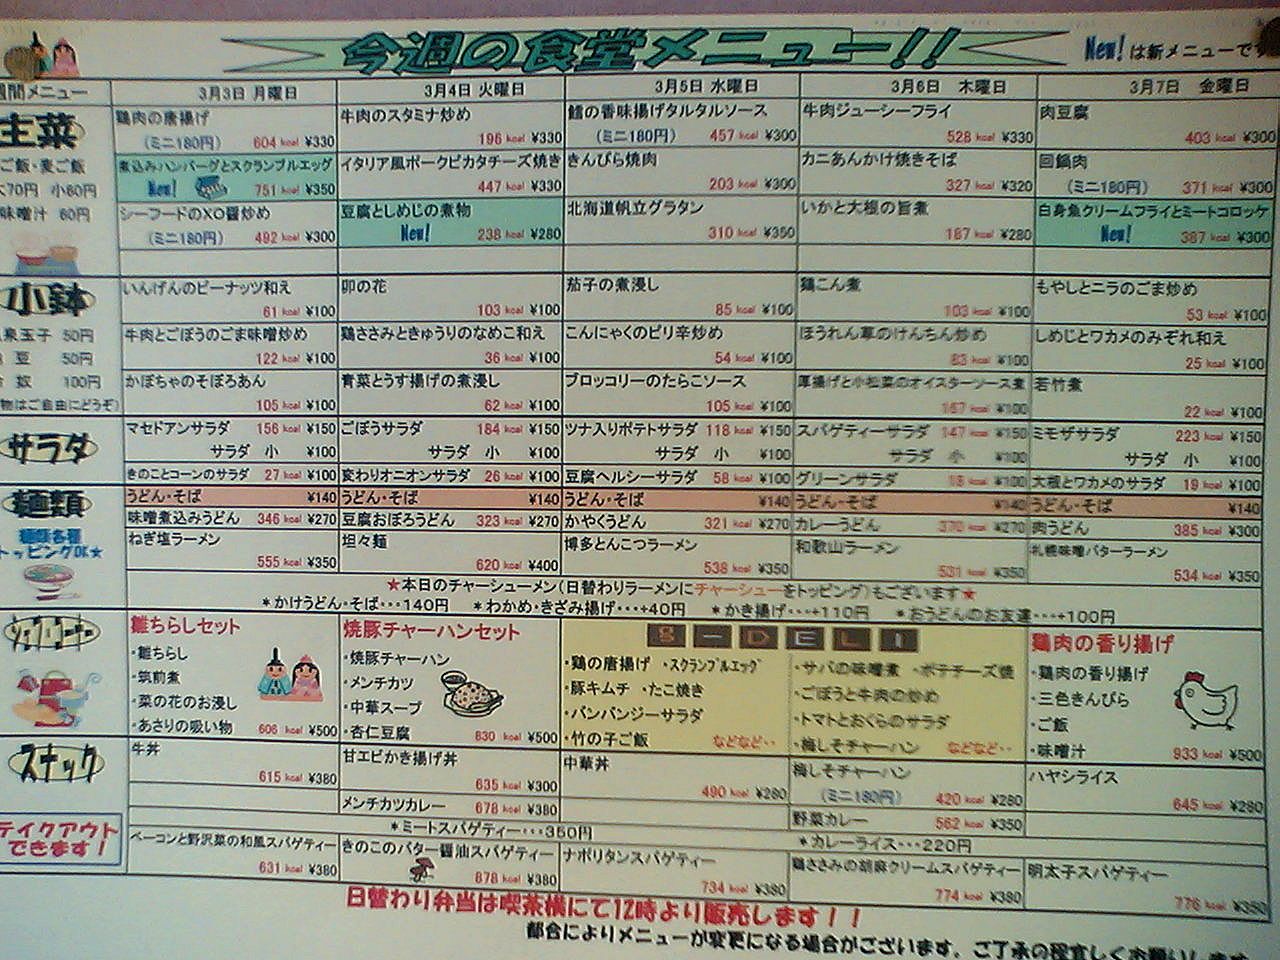 今週の食堂メニュー!!
New!は新メニューです
週間メニュー 3月3日 月曜日 3月4日 火曜日 3月5日 水曜日 3月6日 木曜日 3月7日 金曜日
主菜
ご飯・麦ご飯
大70円 小60円
味噌汁 60円
鶏肉の唐揚げ
(ミニ180円) 604 kcal ¥330
牛肉のスタミナ炒め
196 kcal ¥330
鱈の香味揚げタルタルソース
(ミニ180円) 457 kcal ¥300
牛肉ジューシーフライ
528 kcal ¥330
肉豆腐
403 kcal ¥300
煮込みハンバーグとスクランブルエッグ
New! 751 kcal ¥350
イタリア風ポークピカタチーズ焼き
447 kcal ¥330
きんぴら焼肉
203 kcal ¥300
カニあんかけ焼きそば
327 kcal ¥320
回鍋肉
(ミニ180円) 371 kcal ¥300
シーフードのXO醤炒め
(ミニ180円) 492 kcal ¥300
豆腐としめじの煮物
New! 238 kcal ¥280
北海道帆立グラタン
310 kcal ¥350
いかと大根の旨煮
187 kcal ¥280
白身魚クリームフライとミートコロッケ
New! 387 kcal ¥300
小鉢
泉玉子 50円
豆 50円
奴 100円
物はご自由にどうぞ)
いんげんのピーナッツ和え
61 kcal ¥100
卯の花
103 kcal ¥100
茄子の煮浸し
85 kcal ¥100
鶏ごん煮
103 kcal ¥100
もやしとニラのごま炒め
53 kcal ¥100
牛肉とごぼうのごま味噌炒め
122 kcal ¥100
鶏ささみときゅうりのなめこ和え
36 kcal ¥100
こんにゃくのピリ辛炒め
54 kcal ¥100
ほうれん草のけんちん炒め
83 kcal ¥100
しめじとワカメのみぞれ和え
25 kcal ¥100
かぼちゃのそぼろあん
105 kcal ¥100
青菜とうす揚げの煮浸し
62 kcal ¥100
ブロッコリーのたらこソース
105 kcal ¥100
厚揚げと小松菜のオイスターソース煮
167 kcal ¥100
若竹煮
22 kcal ¥100
サラダ
マセドアンサラダ 156 kcal ¥150
サラダ 小 ¥100
ごぼうサラダ 184 kcal ¥150
サラダ 小 ¥100
ツナ入りポテトサラダ 118 kcal ¥150
サラダ 小 ¥100
スパゲティーサラダ 147 kcal ¥150
サラダ 小 ¥100
ミモザサラダ 223 kcal ¥150
サラダ 小 ¥100
きのことコーンのサラダ 27 kcal ¥100
変わりオニオンサラダ 26 kcal ¥100
豆腐ヘルシーサラダ 58 kcal ¥100
グリーンサラダ 18 kcal ¥100
大根とワカメのサラダ 19 kcal ¥100
麺類
麺類各種
トッピングOK★
うどん・そば ¥140
うどん・そば ¥140
うどん・そば ¥140
うどん・そば ¥140
うどん・そば ¥140
味噌煮込みうどん 346 kcal ¥270
豆腐おぼろうどん 323 kcal ¥270
かやくうどん 321 kcal ¥270
カレーうどん 370 kcal ¥270
肉うどん 385 kcal ¥300
ねぎ塩ラーメン
555 kcal ¥350
坦々麺
620 kcal ¥400
博多とんこつラーメン
538 kcal ¥350
和歌山ラーメン
531 kcal ¥350
札幌味噌バターラーメン
534 kcal ¥350
★本日のチャーシューメン(日替わりラーメンにチャーシューをトッピング)もございます★
*かけうどん・そば…140円 *わかめ・きざみ揚げ…+40円 *かき揚げ…+110円 *おうどんのお友達…+100円
雛ちらしセット
・雛ちらし
・筑前煮
・菜の花のお浸し
・あさりの吸い物 606 kcal ¥500
焼豚チャーハンセット
・焼豚チャーハン
・メンチカツ
・中華スープ
・杏仁豆腐 830 kcal ¥500
g-DELI
・鶏の唐揚げ ・スクランブルエッグ
・豚キムチ ・たこ焼き
・バンバンジーサラダ
・竹の子ご飯 などなど‥
・サバの味噌煮 ・ポテチーズ焼
・ごぼうと牛肉の炒め
・トマトとおくらのサラダ
・梅しそチャーハン などなど‥
鶏肉の香り揚げ
・鶏肉の香り揚げ
・三色きんぴら
・ご飯
・味噌汁 933 kcal ¥500
スナック
テイクアウト
できます!
牛丼
615 kcal ¥380
甘エビかき揚げ丼
635 kcal ¥300
中華丼
490 kcal ¥280
梅しそチャーハン
(ミニ180円) 420 kcal ¥280
ハヤシライス
645 kcal ¥280
メンチカツカレー 678 kcal ¥380
野菜カレー 562 kcal ¥350
*ミートスパゲティー…350円
*カレーライス…220円
ベーコンと野沢菜の和風スパゲティー
631 kcal ¥380
きのこのバター醤油スパゲティー
878 kcal ¥380
ナポリタンスパゲティー
734 kcal ¥380
鶏ささみの胡麻クリームスパゲティー
774 kcal ¥380
明太子スパゲティー
776 kcal ¥350
日替わり弁当は喫茶横にて12時より販売します!!
都合によりメニューが変更になる場合がございます。ご了承の程宜しくお願いします